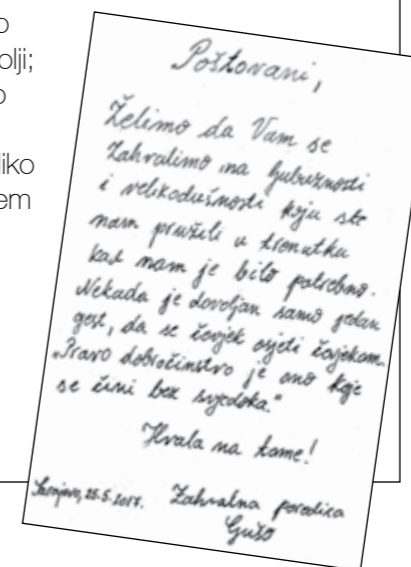 o
olji;
o
liko
em
Poštovani,
Želimo da Vam se
zahvalimo na ljubaznosti
i velikodušnosti koju ste
nam pružili u trenutku
kad nam je bilo potrebno.
Nekada je dovoljan samo jedan
gest, da se čovjek osjeti čovjekom.
"Pravo dobročinstvo je ono koje
se čini bez svjedoka."
Hvala na tome!
Sarajevo, 25.5.2017.
Zahvalna porodica
Gušo